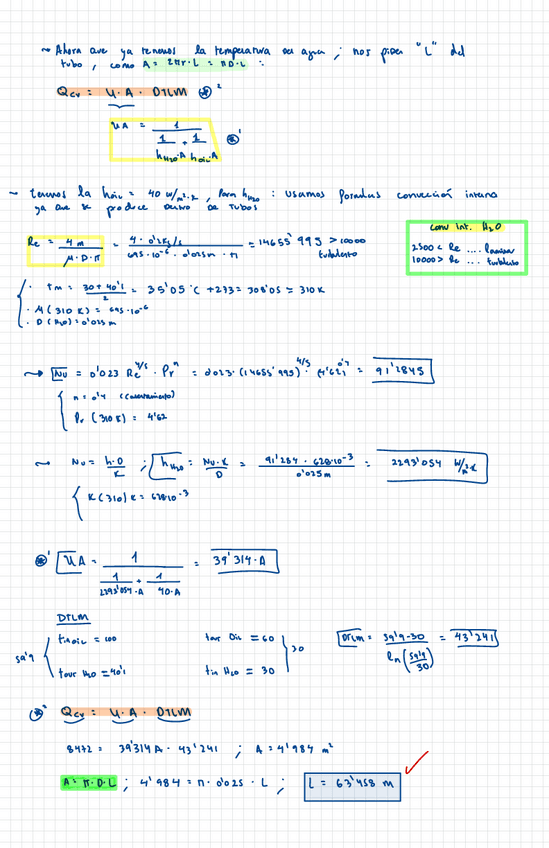 ~ Ahora que ya tenemos la temperatura del agua ; nos piden "L" del
tubo, como A = 2πr·L = πD·L :
Qcv = U·A · DTLM ⊛²
UA = 1 / (1/(hH2O·A) + 1/(hoil·A)) ⊛¹
~ Tenemos la hoil = 40 W/m²·K , para hH2O : usamos formulas convección interna
ya que se produce dentro de tubos
Re = 4·m / (μ·D·π) = 4·0'2 kg/s / (695·10⁻⁶ · 0'025m · π) = 14655'995 > 10000
turbulento
conv int. H2O
2300 < Re .... laminar
10000 > Re ... turbulento
· Tm = (30 + 40'1)/2 = 35'05 °C + 273 = 308'05 ≈ 310K
· μ (310 K) = 695·10⁻⁶
· D (H2O) = 0'025 m
→ Nu = 0'023 Re^4/5 · Pr^n = 0'023 · (14655'995)^4/5 · (4'62)^0'4 = 91'2845
n = 0'4 (calentamiento)
Pr (310 K) = 4'62
~ Nu = h·D/K ; hH2O = Nu·K/D = 91'284 · 628·10⁻³ / 0'025m = 2293'054 W/m²·K
K (310) K = 628·10⁻³
⊛¹ UA = 1 / (1/(2293'054·A) + 1/(40·A)) = 39'314·A
DTLM
59'9
Tin oil = 100
Tout H2O = 40'1
Tout Oil = 60
Tin H2O = 30
30
DTLM = (59'9-30) / ln(59'9/30) = 43'241
⊛² Qcv = U·A · DTLM
8472 = 39'314 A · 43'241 ; A = 4'984 m²
A = π·D·L ; 4'984 = π · 0'025 · L ; L = 63'458 m